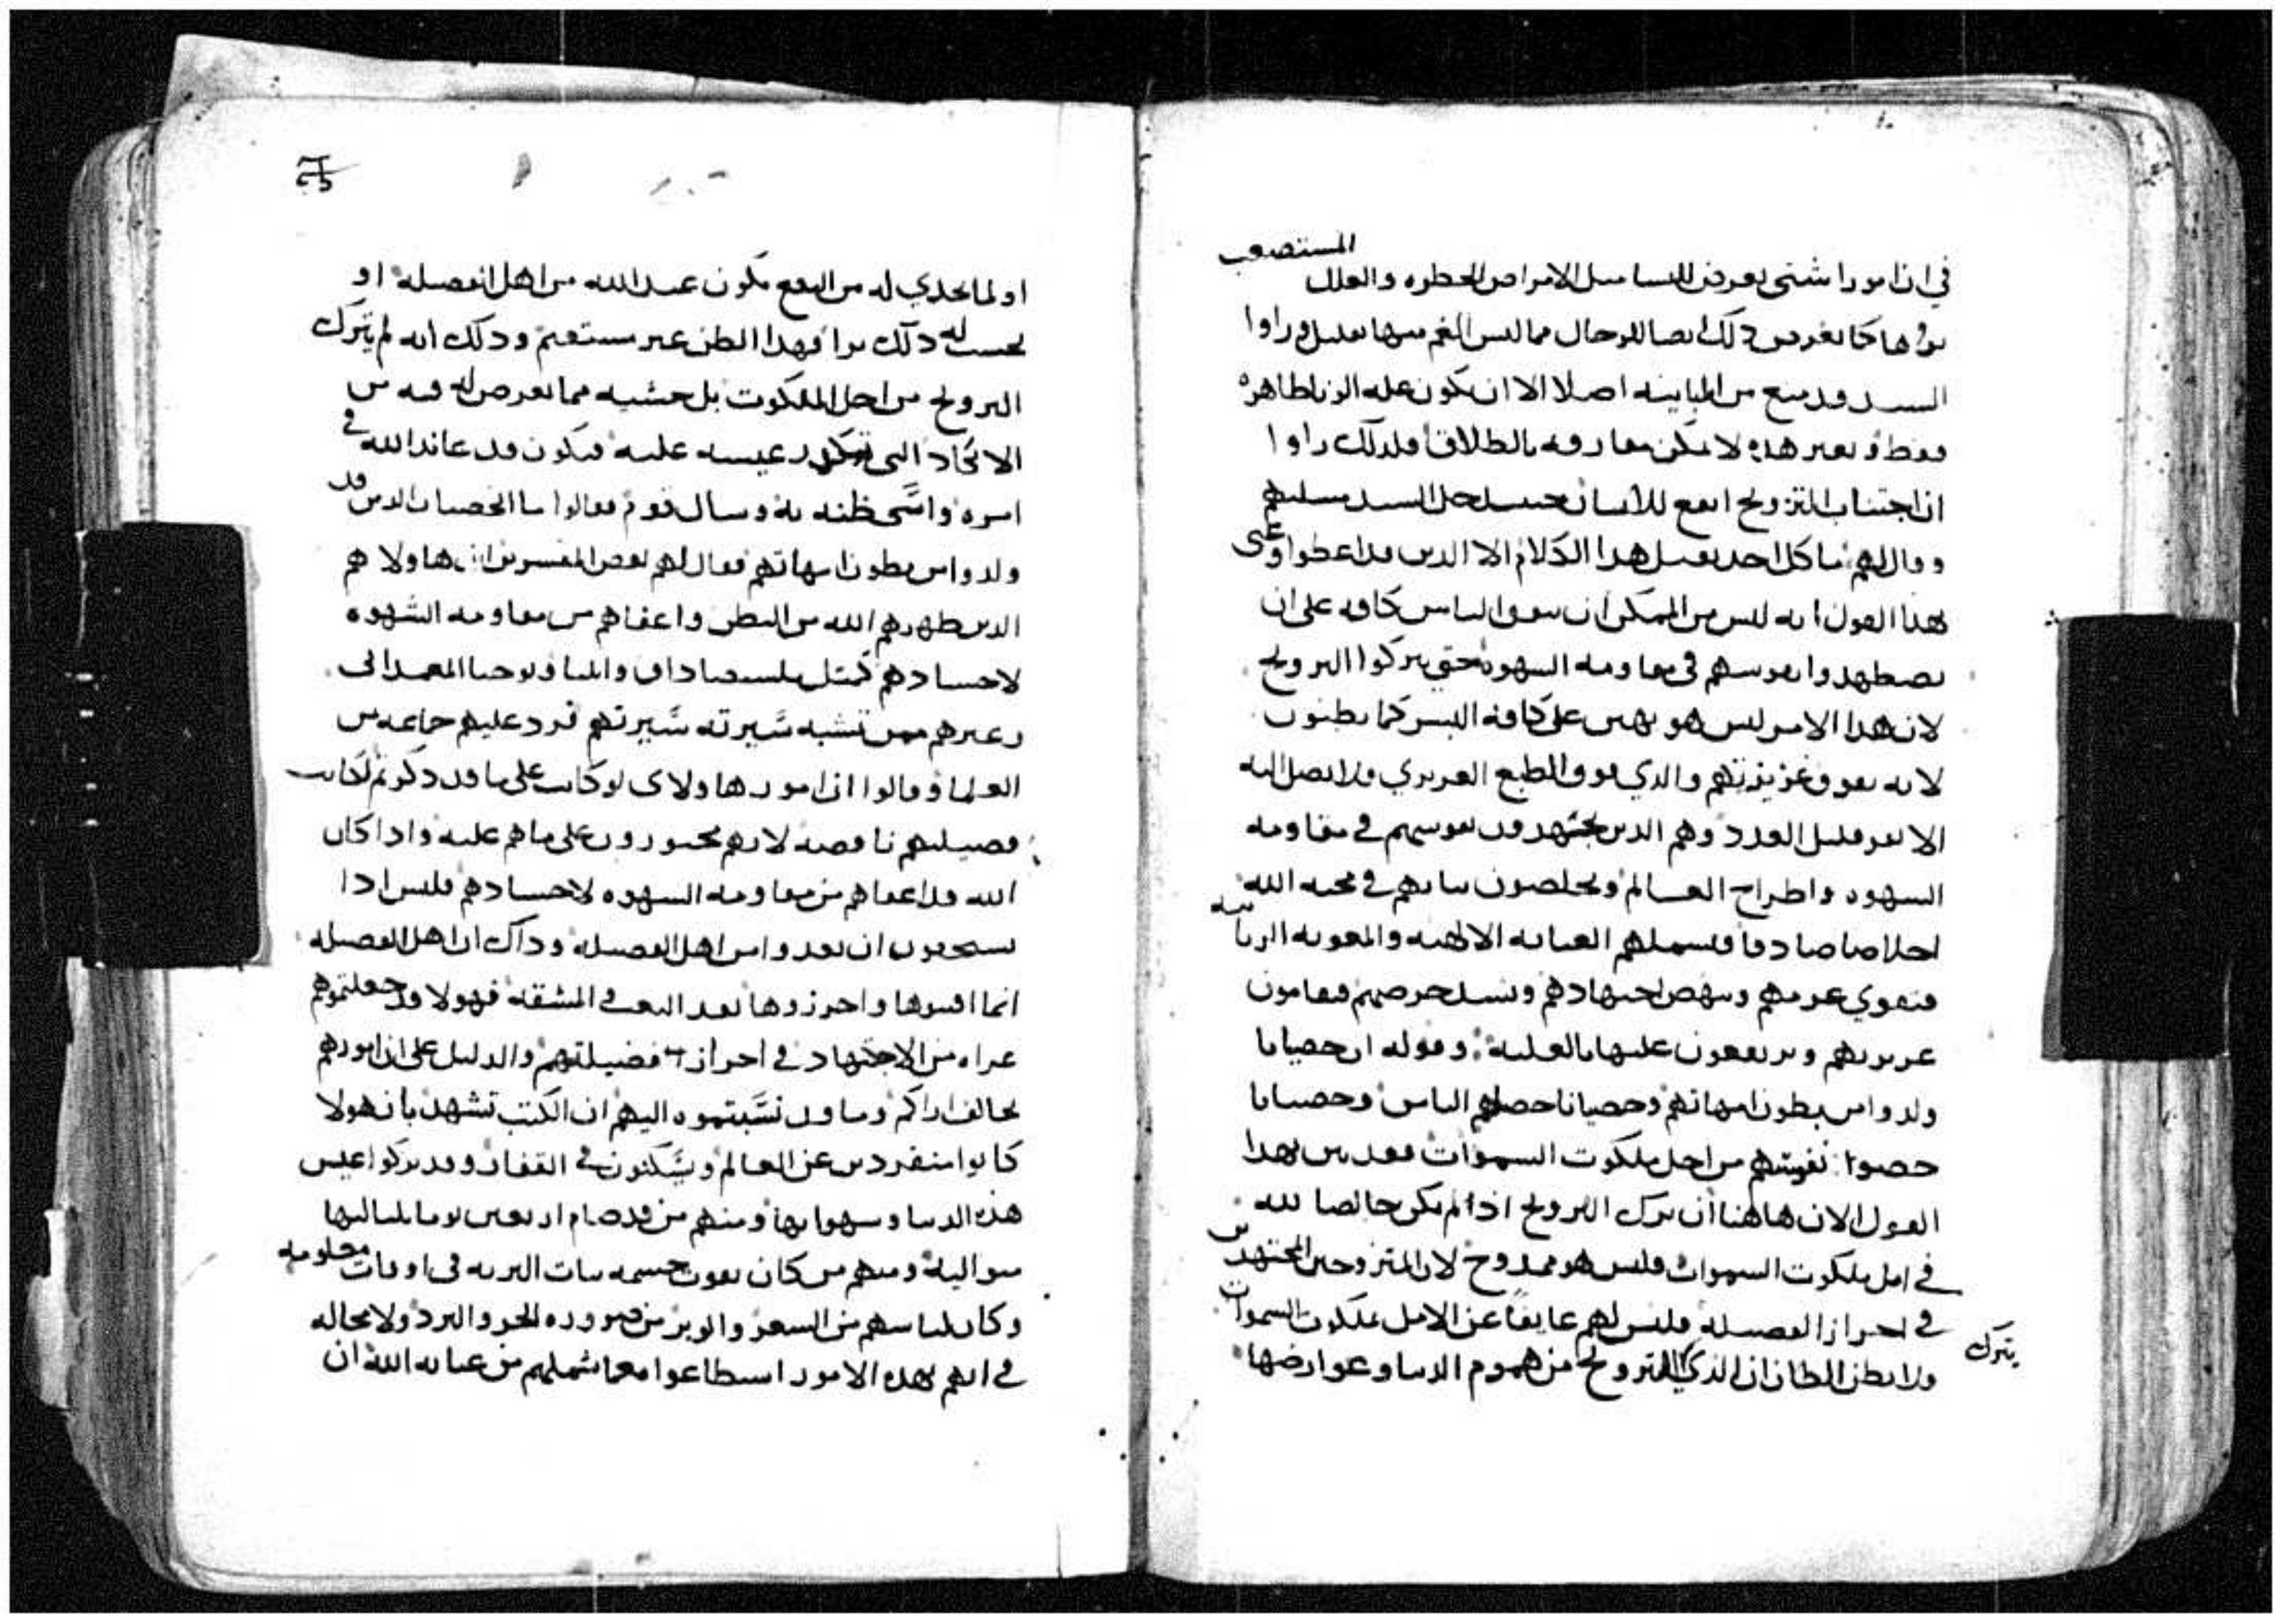 المستصعب
في ان امورا شتى تعرض للنسا مثل الامراض الخطره والعلل
كما تعرض ذلك ايضا للرجال مما ليس الغم منها بقليل وراوا
السيد قد منع من المباينه اصلا الا ان تكون عله الزنا ظاهره
فقط وبغير هذه لا يمكن مفارقه بالطلاق فلذلك راوا
ان اجتناب التزويج انفع للانسان حينيذ حل السيد مسلتهم
وقال لهم ما كل احد يقبل هذا الكلام الا الذين قد اعطوا وعنى
بهذا القول انه ليس من الممكن ان يتفق الناس كافه على ان
يضطهدوا نفوسهم في مقاومه الشهوه حتى يتركوا التزويج
لان هذا الامر ليس هو بهين على كافه البشر كما يظنون
لانه يفوق غريزتهم والذي فوق الطبع الغريزي فلا يصل اليه
الا نفر قليل العدد وهم الذين يجتهدون نفوسهم في مقاومه
الشهوه واطراح العالم ويخلصون نياتهم في محبه الله
اخلاصا صادقا فتشملهم العنايه الالاهيه والمعونه الربانيه
فتقوي عزمهم وينهض اجتهادهم ويشتد حرصهم فيقامون
غريزتهم ويرتفعون عليها بالغلبه: وقوله ان خصيانا
ولدوا من بطون امهاتهم وخصيانا خصاهم الناس وخصيانا
خصوا نفوسهم من اجل ملكوت السموات فقد بين بهذا
القول الان هاهنا ان ترك التزويج اذا لم يكن خالصا لله
في امل ملكوت السموات فليس هو ممدوح لان المتزوجين المجتهدين
في احراز الفضيله فليس لهم عايقا عن الامل بملكوت السموات
ولا يظن الظان ان الذي يترك التزويج من هموم الدنيا وعوارضها
او لما يجدي له من النفع يكون عند الله من اهل الفضيله او
يحسب له ذلك برا فهذا الظن غير مستقيم وذلك انه لم يترك
التزويج من اجل الملكوت بل خشيه مما يعرض له فيه من
الانكاد التي تكدر عيشه عليه فيكون قد عاند الله في
امره واسا ظنه به وسال قوم فقالوا ما الخصيان الذين قد
ولدوا من بطون امهاتهم فقال لهم بعض المفسرين ان هاولا هم
الذين طهرهم الله من البطن واعفاهم من مقاومه الشهوه
لاجسادهم كمثل ملشيصاداق وايليا ويوحنا المعمداني
وغيرهم ممن تشبه سيرته سيرتهم فرد عليهم جماعه من
العلما وقالوا ان امور هاولاى لو كانت على ما قد ذكرتم لكانت
فضيلتهم ناقصه لانهم مجبورون على ماهم عليه واذا كان
الله قد اعفاهم من مقاومه الشهوه لاجسادهم فليس اذا
يستحقون ان يعدوا من اهل الفضيله وذاك ان اهل الفضيله
انما اقتنوها واحرزوها بعد التعب في المشقه فهولا قد جعلتموهم
عراه من الاجتهاد في احراز فضيلتهم والدليل على ان امورهم
تخالف اراكم وما قد نسبتموه اليهم ان الكتب تشهد بان هولا
كانوا منفردين عن العالم ويسكنون في القفار وقد تركوا عيش
هذه الدنيا وشهواتها ومنهم من قد صام اربعين يوما بلياليها
متواليه ومنهم من كان يقوت جسمه بنبات البريه في اوقات معلومه
وكان لباسهم من الشعر والوبر من ضروره الحر والبرد ولا محاله
في انهم بهذه الامور استطاعوا معما شملهم من عنايه الله ان
يترك